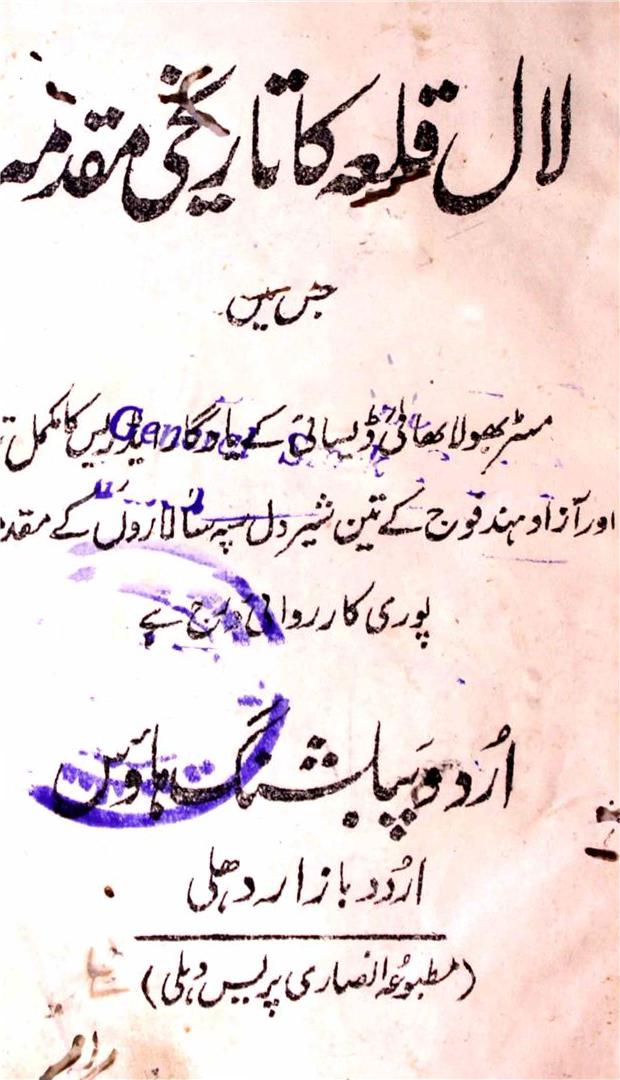 لال قلعہ کا تاریخی مقدمہ
جس میں
مسٹر بھولا بھائی ڈیسائی کے یادگار ایڈریس کا مکمل
General
اور آزاد ہند فوج کے تین شیر دل سپہ سالاروں کے مقدمہ
پوری کارروائی درج ہے
اُردو پبلشنگ ہاؤس
اردو بازار دھلی
(مطبوعہ انصاری پریس دہلی)